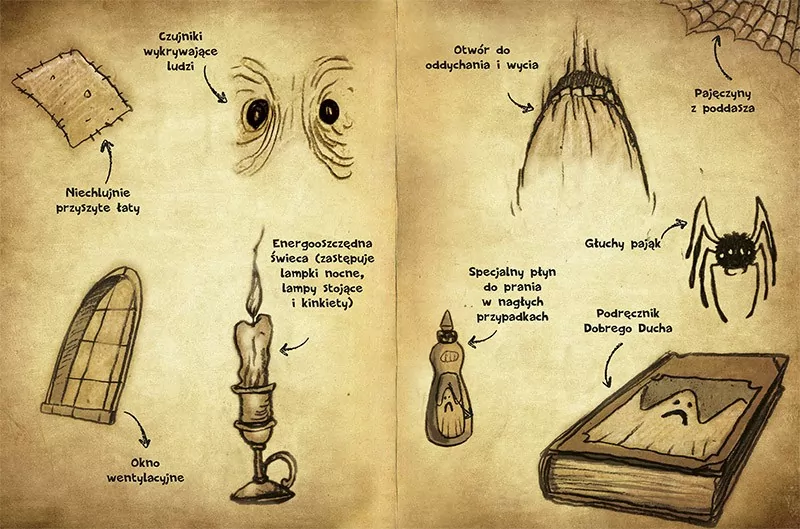 Czujniki
wykrywające
ludzi
Niechlujnie
przyszyte łaty
Energooszczędna
świeca (zastępuje
lampki nocne,
lampy stojące
i kinkiety)
Okno
wentylacyjne
Otwór do
oddychania i wycia
Pajęczyny
z poddasza
Głuchy pająk
Specjalny płyn
do prania
w nagłych
przypadkach
Podręcznik
Dobrego Ducha